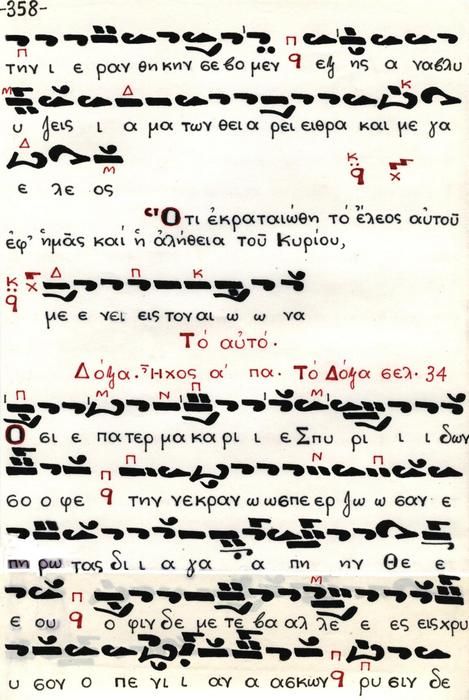 -358-
την ι ε ραν θη κην σε βο μεν εξ ης α να βλυ
υ ζεις ι α μα των θει α ρει ειθρα και με γα
ε λε ος
Ὅτι ἐκραταιώθη τό ἔλεος αὐτοῦ
ἐφ' ἡμᾶς καί ἡ ἀλήθεια τοῦ Κυρίου,
με ε νει εις τον αι ω ω να
Τό αὐτό.
Δόξα. Ἦχος α' πα. Τό Δόξα σελ. 34
Ο σι ε πα τερ μα κα ρι ι ε Σπυ ρι ι ι δων
σο ο φε την νεκραν ω ωσπε ερ ζω ω σαν ε
πη ρω τας δι ι α γα α πη ην Θε ε
ε ου ο φιν δε με τε βα αλ λε ε ες εις χρυ
υ σον ο πε νι ι αν α ασκων ρυ σιν δε